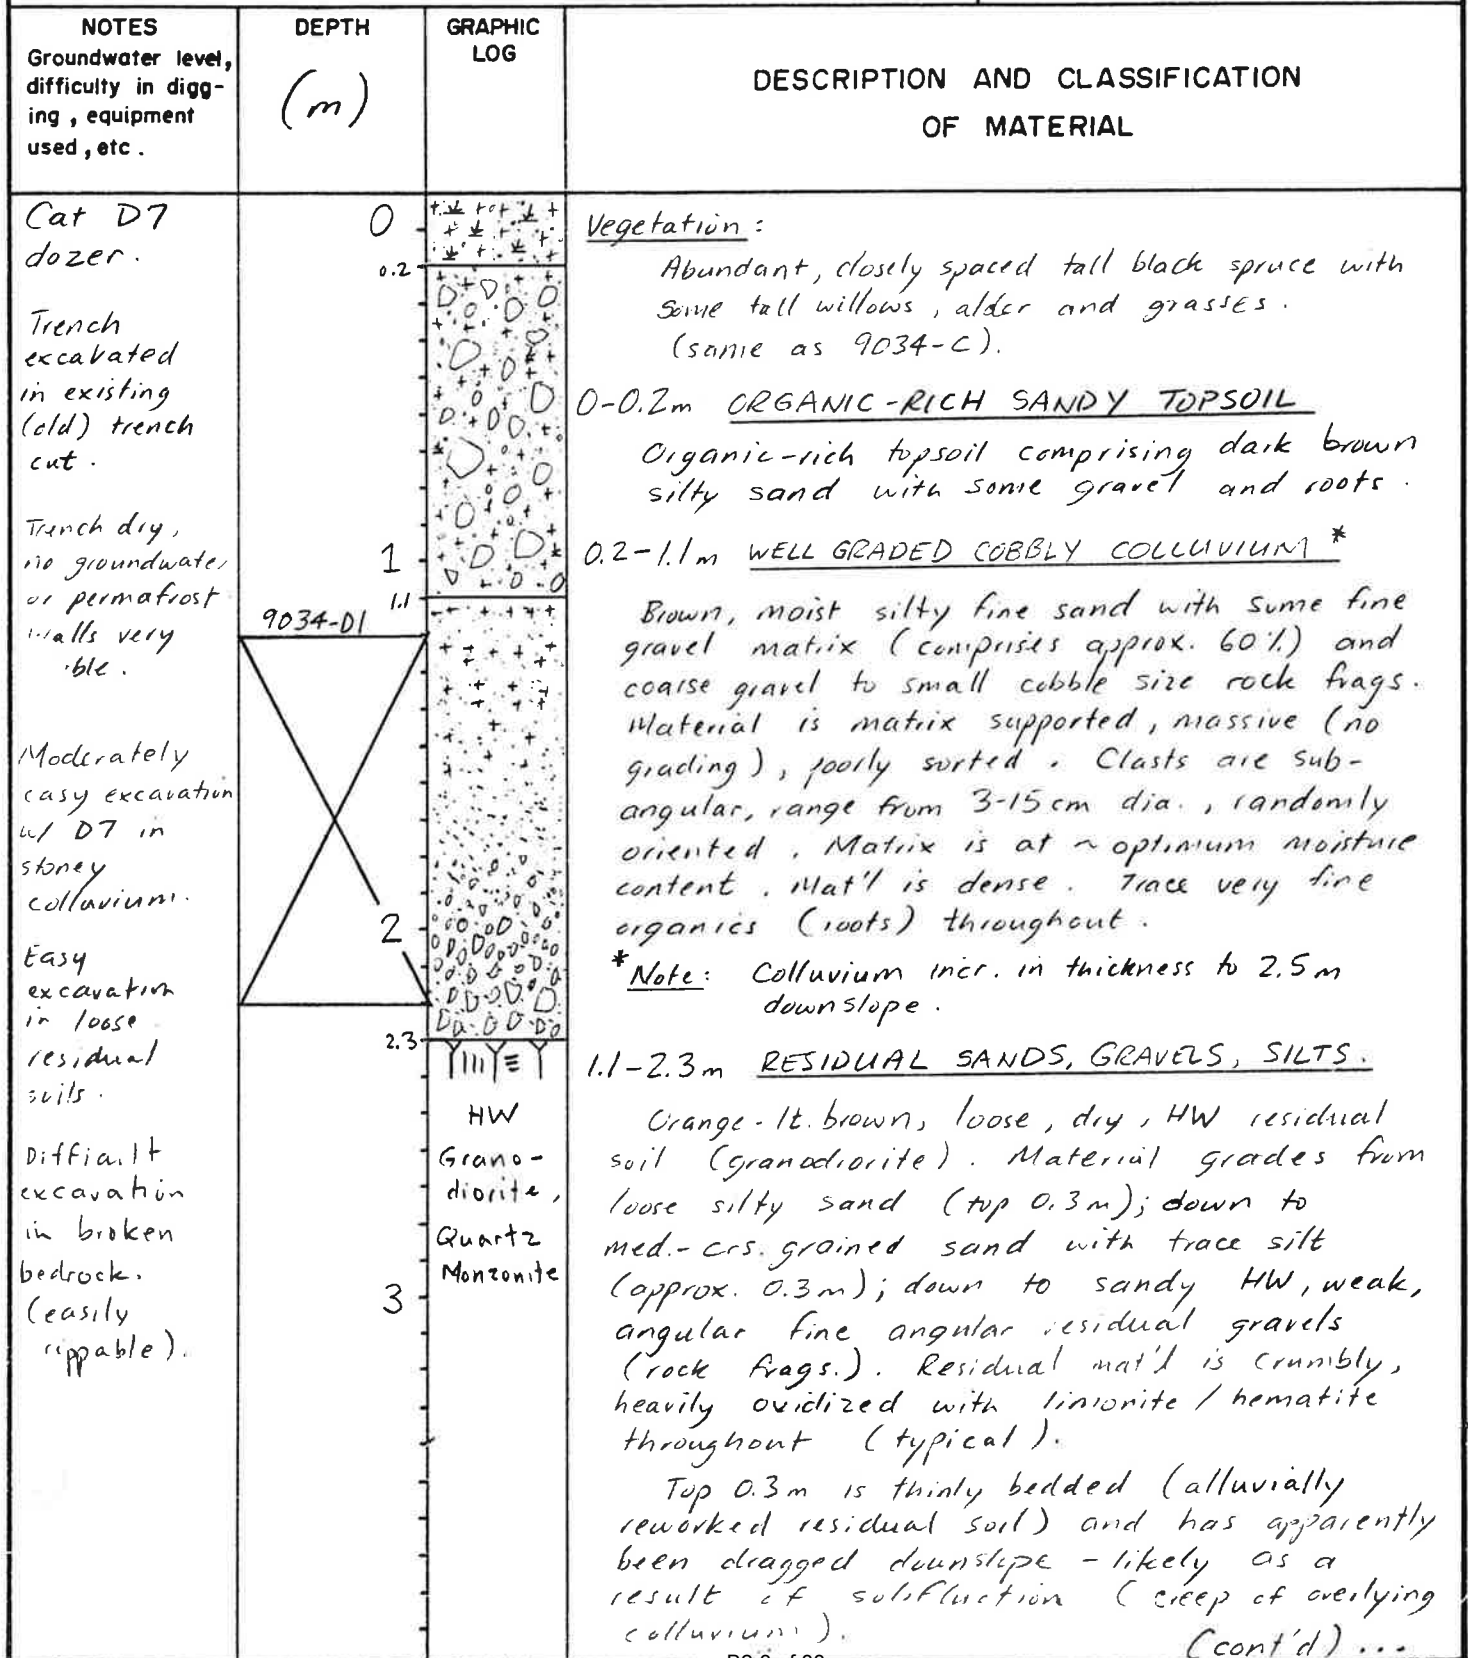 NOTES
Groundwater level,
difficulty in digg-
ing, equipment
used, etc.
DEPTH
(m)
GRAPHIC
LOG
DESCRIPTION AND CLASSIFICATION
OF MATERIAL
Cat D7
dozer.
Trench
excavated
in existing
(old) trench
cut.
Trench dry,
no groundwater
or permafrost
walls very
Moderately
easy excavation
w/ D7 in
stoney
colluvium.
Easy
excavation
in loose
residual
soils.
Difficult
excavation
in broken
bedrock.
(easily
rippable).
0
0.2
1
1.1
9034-D1
2
2.3
3
HW
Grano-
diorite,
Quartz
Monzonite
Vegetation:
Abundant, closely spaced tall black spruce with
some tall willows, alder and grasses.
(same as 9034-C).
0-0.2m ORGANIC-RICH SANDY TOPSOIL
Organic-rich topsoil comprising dark brown
silty sand with some gravel and roots.
0.2-1.1m WELL GRADED COBBLY COLLUVIUM *
Brown, moist silty fine sand with some fine
gravel matrix (comprises approx. 60%) and
coarse gravel to small cobble size rock frags.
Material is matrix supported, massive (no
grading), poorly sorted. Clasts are sub-
angular, range from 3-15cm dia., randomly
oriented. Matrix is at ~ optimum moisture
content. Mat'l is dense. Trace very fine
organics (roots) throughout.
* Note: Colluvium incr. in thickness to 2.5m
downslope.
1.1-2.3m RESIDUAL SANDS, GRAVELS, SILTS.
Orange-lt. brown, loose, dry, HW residual
soil (granodiorite). Material grades from
loose silty sand (top 0.3m); down to
med.-crs. grained sand with trace silt
(approx. 0.3m); down to sandy HW, weak,
angular fine angular residual gravels
(rock frags.). Residual mat'l is crumbly,
heavily oxidized with limonite/hematite
throughout (typical).
Top 0.3m is thinly bedded (alluvially
reworked residual soil) and has apparently
been dragged downslope - likely as a
result of solifluction (creep of overlying
colluvium).
(cont'd)...